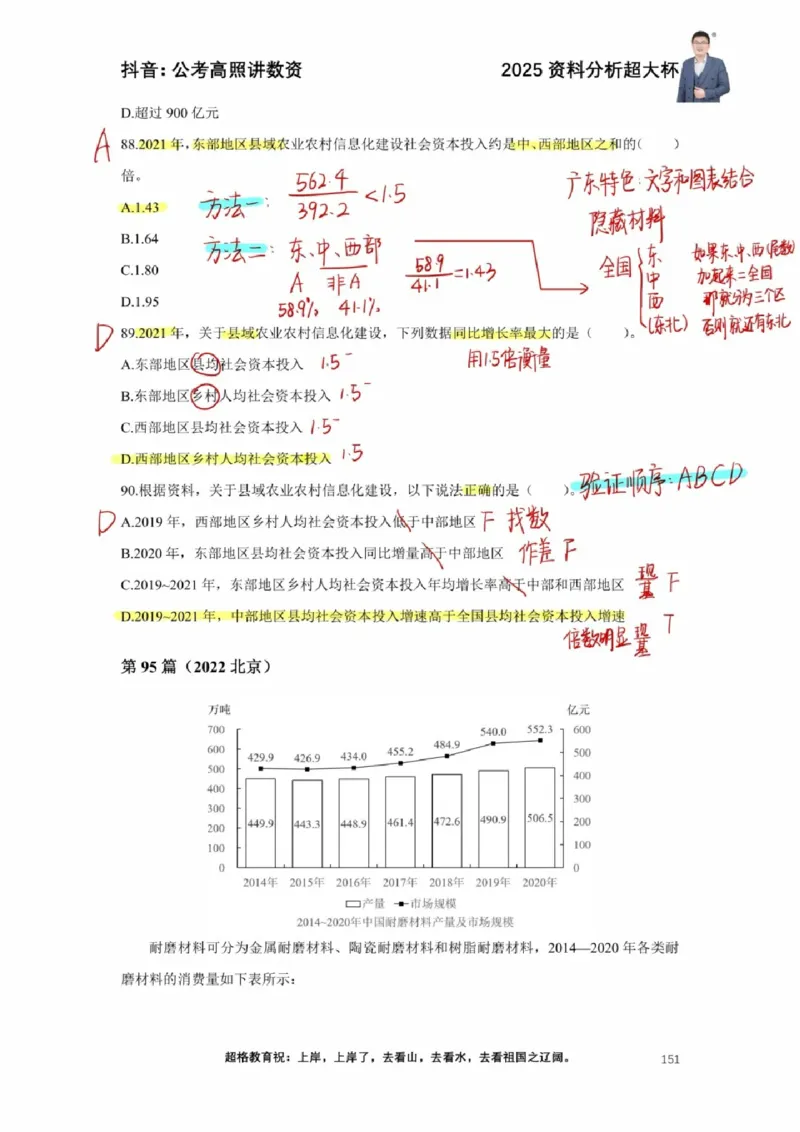 抖音：公考高照讲数资
2025 资料分析超大杯
D.超过 900 亿元
A
88.2021 年，东部地区县域农业农村信息化建设社会资本投入约是中、西部地区之和的（　　）
倍。
方法一： 562.4/392.2 <1.5
广东特色：文字和图表结合
隐藏材料
A.1.43
B.1.64
方法二： 东、中、西部
A 非A
58.9% 41.1%
58.9/41.1=1.43
全国
东
中
西
(东北)
如果东、中、西(尾数)
加起来=全国
那就分为三个区
否则就还有东北
C.1.80
D.1.95
D
89.2021 年，关于县域农业农村信息化建设，下列数据同比增长率最大的是（　　）。
用1.5倍衡量
A.东部地区县均社会资本投入 1.5⁻
B.东部地区乡村人均社会资本投入 1.5⁻
C.西部地区县均社会资本投入 1.5⁻
D.西部地区乡村人均社会资本投入 1.5
90.根据资料，关于县域农业农村信息化建设，以下说法正确的是（　　）。
验证顺序：ABCD
D
A.2019 年，西部地区乡村人均社会资本投入低于中部地区 F 找数
B.2020 年，东部地区县均社会资本投入同比增量高于中部地区 作差 F
C.2019~2021 年，东部地区乡村人均社会资本投入年均增长率高于中部和西部地区 现/基 F
D.2019~2021 年，中部地区县均社会资本投入增速高于全国县均社会资本投入增速 T
倍数明显 现/基
第 95 篇（2022 北京）
万吨 亿元
700 600
600 500
500 400
400 300
300 200
200 100
100 0
0
429.9 426.9 434.0 455.2 484.9 540.0 552.3
449.9 443.3 448.9 461.4 472.6 490.9 506.5
2014年 2015年 2016年 2017年 2018年 2019年 2020年
产量 市场规模
2014~2020年中国耐磨材料产量及市场规模
耐磨材料可分为金属耐磨材料、陶瓷耐磨材料和树脂耐磨材料，2014—2020 年各类耐
磨材料的消费量如下表所示：
超格教育祝：上岸，上岸了，去看山，去看水，去看祖国之辽阔。
151